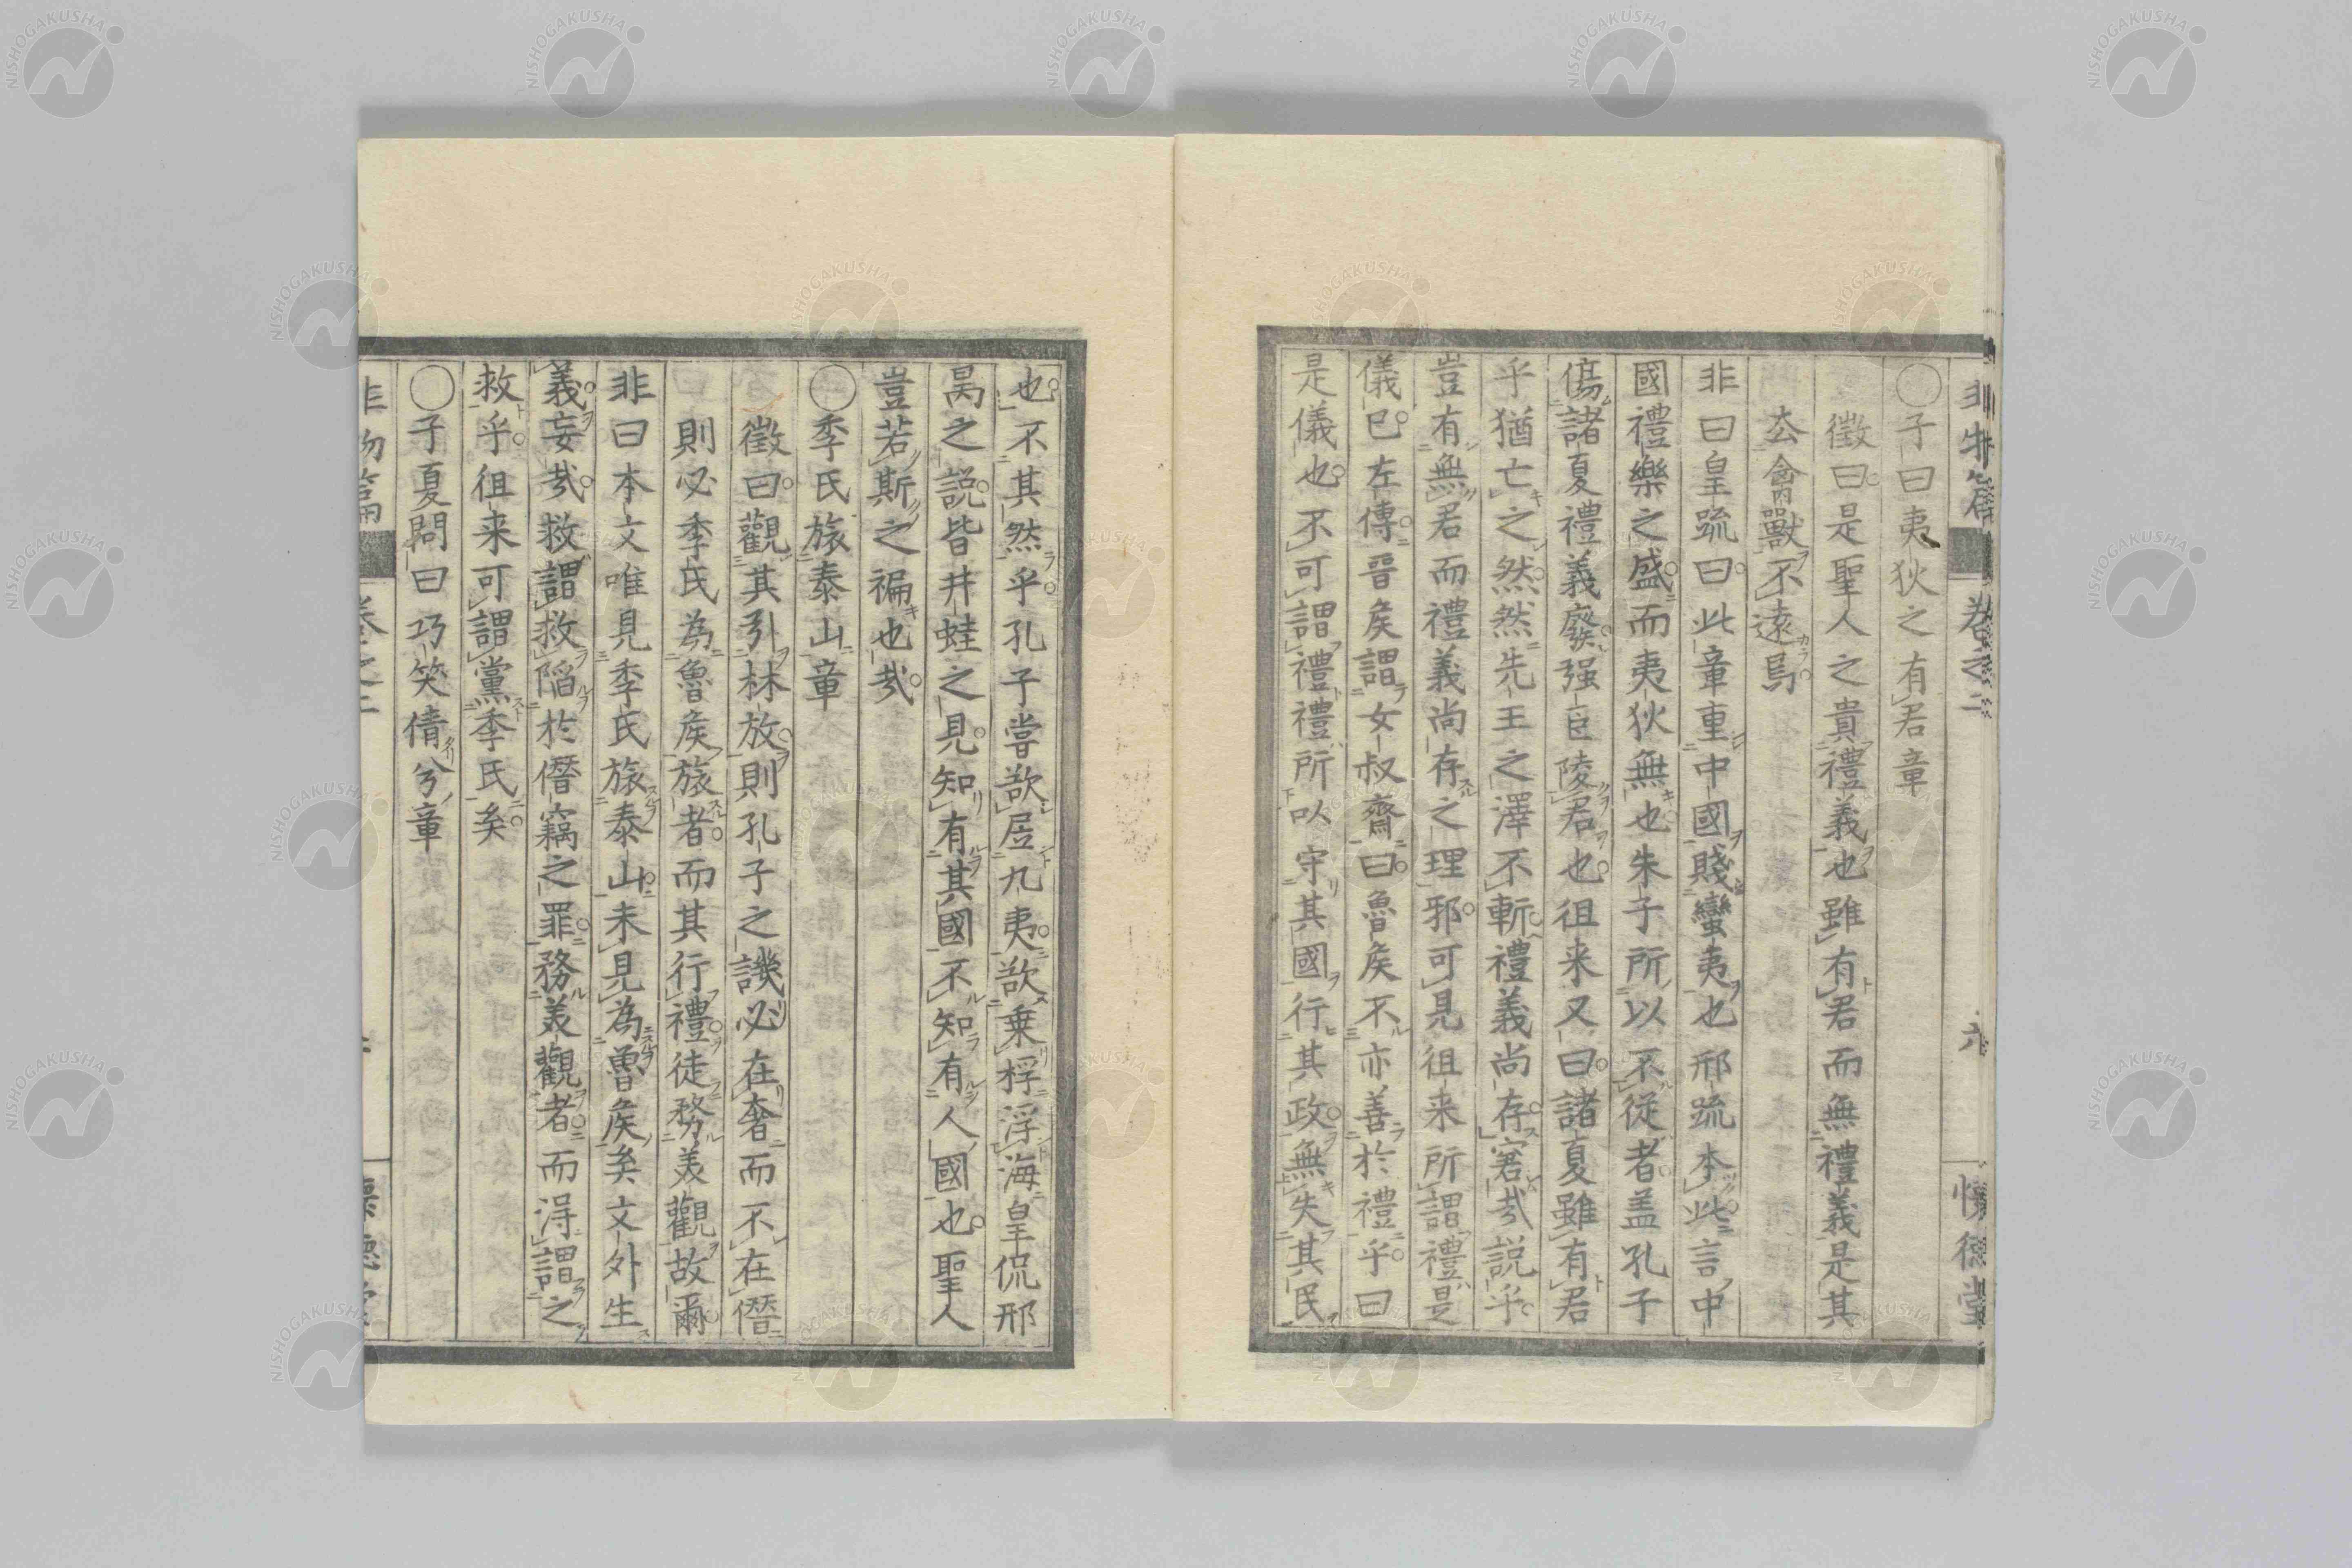 非物篇 卷之二 六 懷德堂
○子曰夷狄之有君章
徵曰是聖人之貴禮義也雖有君而無禮義是其
厺禽獸不遠焉
非曰皇疏曰此章重中國賤蠻夷也邢疏本此言中
國禮樂之盛而夷狄無也朱子所以不從者盖孔子
傷諸夏禮義廢强臣陵君也徂来又曰諸夏雖有君
乎猶亡之然然先王之澤不斬禮義尚存窘㢤説乎
豈有無君而禮義尚存之理邪可見徂来所謂禮是
儀已左傳晉矦謂女叔齋曰魯矦不亦善於禮乎曰
是儀也不可謂禮禮所以守其國行其政無失其民
也不其然乎孔子嘗欲居九夷欲乗桴浮海皇侃邢
昺之説皆井蛙之見知有其國不知有人國也聖人
豈若斯之褊也㢤
○季氏旅泰山章
徵曰觀其引林放則孔子之譏必在奢而不在僭
則必季氏為魯矦旅者而其行禮徒務美觀故爾
非曰本文唯見季氏旅泰山未見為魯矦矣文外生
義妄㢤救謂救陷於僭竊之罪務美觀者而淂謂之
救乎徂来可謂黨季氏矣
○子夏問曰巧笑倩兮章
非物篇 卷之二 懷德堂
NISHOGAKUSHA